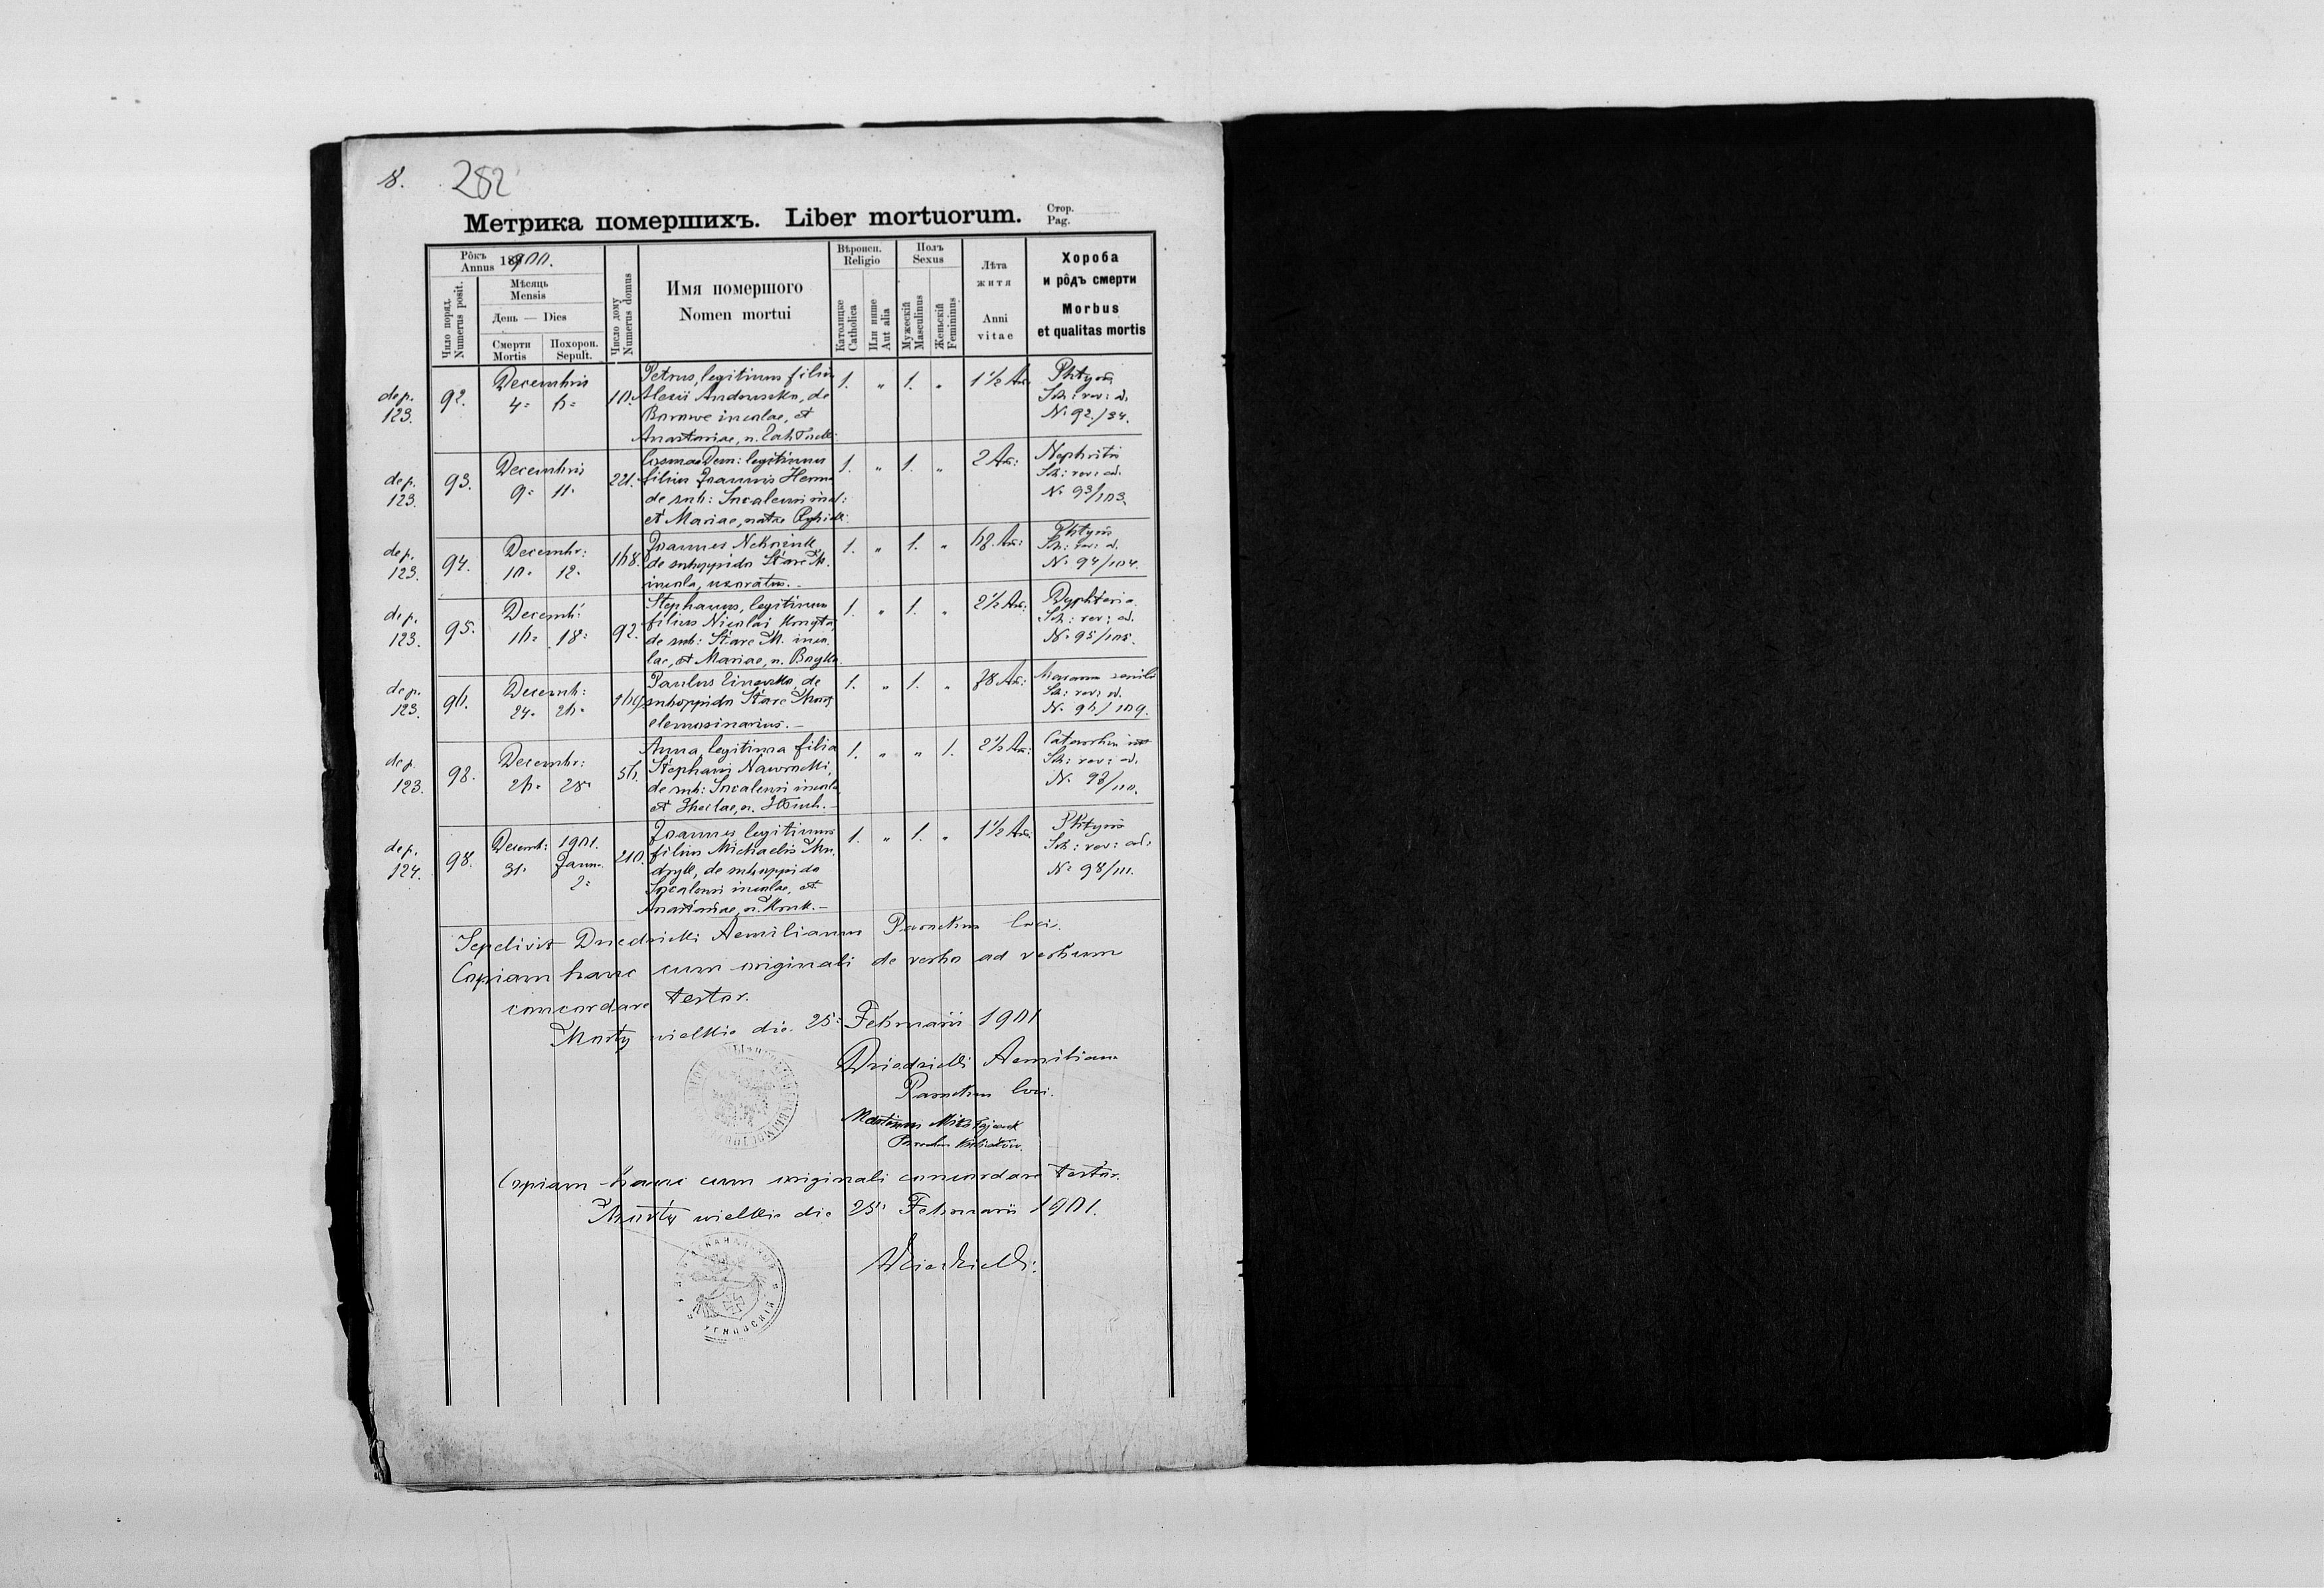 8. 282
Метрика помершихъ. Liber mortuorum. Стор. Pag.
Рôкъ Annus 1900.
Число поряд. Numerus posit.
Мѣсяць Mensis
День — Dies
Смерти Mortis
Похорон. Sepult.
Число дому Numerus domus
Имя помершого
Nomen mortui
Вѣроисп. Religio
Католицке Catholica
Или инше Aut alia
Полъ Sexus
Мужескій Masculinus
Женьскій Femininus
Лѣта житя
Anni vitae
Хороба и рôдъ смерти
Morbus et qualitas mortis
dep. 123. 92. Decembris 4. 6. 10.
Petrus, legitimus filius
Alexii de
incolae, et
Anastasiae, n.
1. „ 1. „ 1 1/2 An:
Phtysis
Sch: rev: ad.
N. 92./94.
dep. 123. 93. Decembris 9. 11. 221.
Cosmas Dem: legitimus
filius Joannis
de sub: incol:
et Mariae, natae
1. „ 1. „ 2 An:
Nephritis
Sch: rev: ad.
N. 93/103.
dep. 123. 94. Decembr: 10. 12. 168.
Joannes
de suboppido Stare M.
incola, uxoratus.
1. „ 1. „ An:
Phtysis
Sch: rev: ad.
N. 94/104.
dep. 123. 95. Decemb: 16. 18. 92.
Stephanus, legitimus
filius Nicolai
de sub: Stare M. inco
lae, et Mariae, n.
1. „ 1. „ 2 1/2 An:
Dyphteria
Sch: rev: ad.
N. 95/105.
dep. 123. 96. Decemb: 24. 26.
Paulus de
suboppido Stare Mosty
elemosinarius.
1. „ 1. „ 78 An:
Marasmus senilis
Sch: rev: ad.
N. 96/109.
dep. 123. 98. Decembr: 26. 28. 56.
Anna, legitima filia
Stephani Nawrocki,
de sub: incolae
et Theclae, n.
1. „ „ 1. 2 1/2 An:
Sch: rev: ad.
N. 98/110.
dep. 124. 98. Decemb: 31. 1901. Januar. 2. 210.
Joannes legitimus
filius Michaelis Mu
dryk, de suboppido
incolae, et
Anastasiae, n.
1. „ 1. „ 1 1/2 An:
Phtysis
Sch: rev: ad.
N. 98/111.
Sepelivit Aemilianus Parochus loci.
Copiam hanc cum originali de verbo ad verbum
concordare testor.
Mosty wielkie die 25. Februarii 1901
Aemilianus
Parochus loci.
Martinus
Parochus
Copiam hanc cum originali concordare testor.
Mosty wielkie die 25. Februarii 1901.